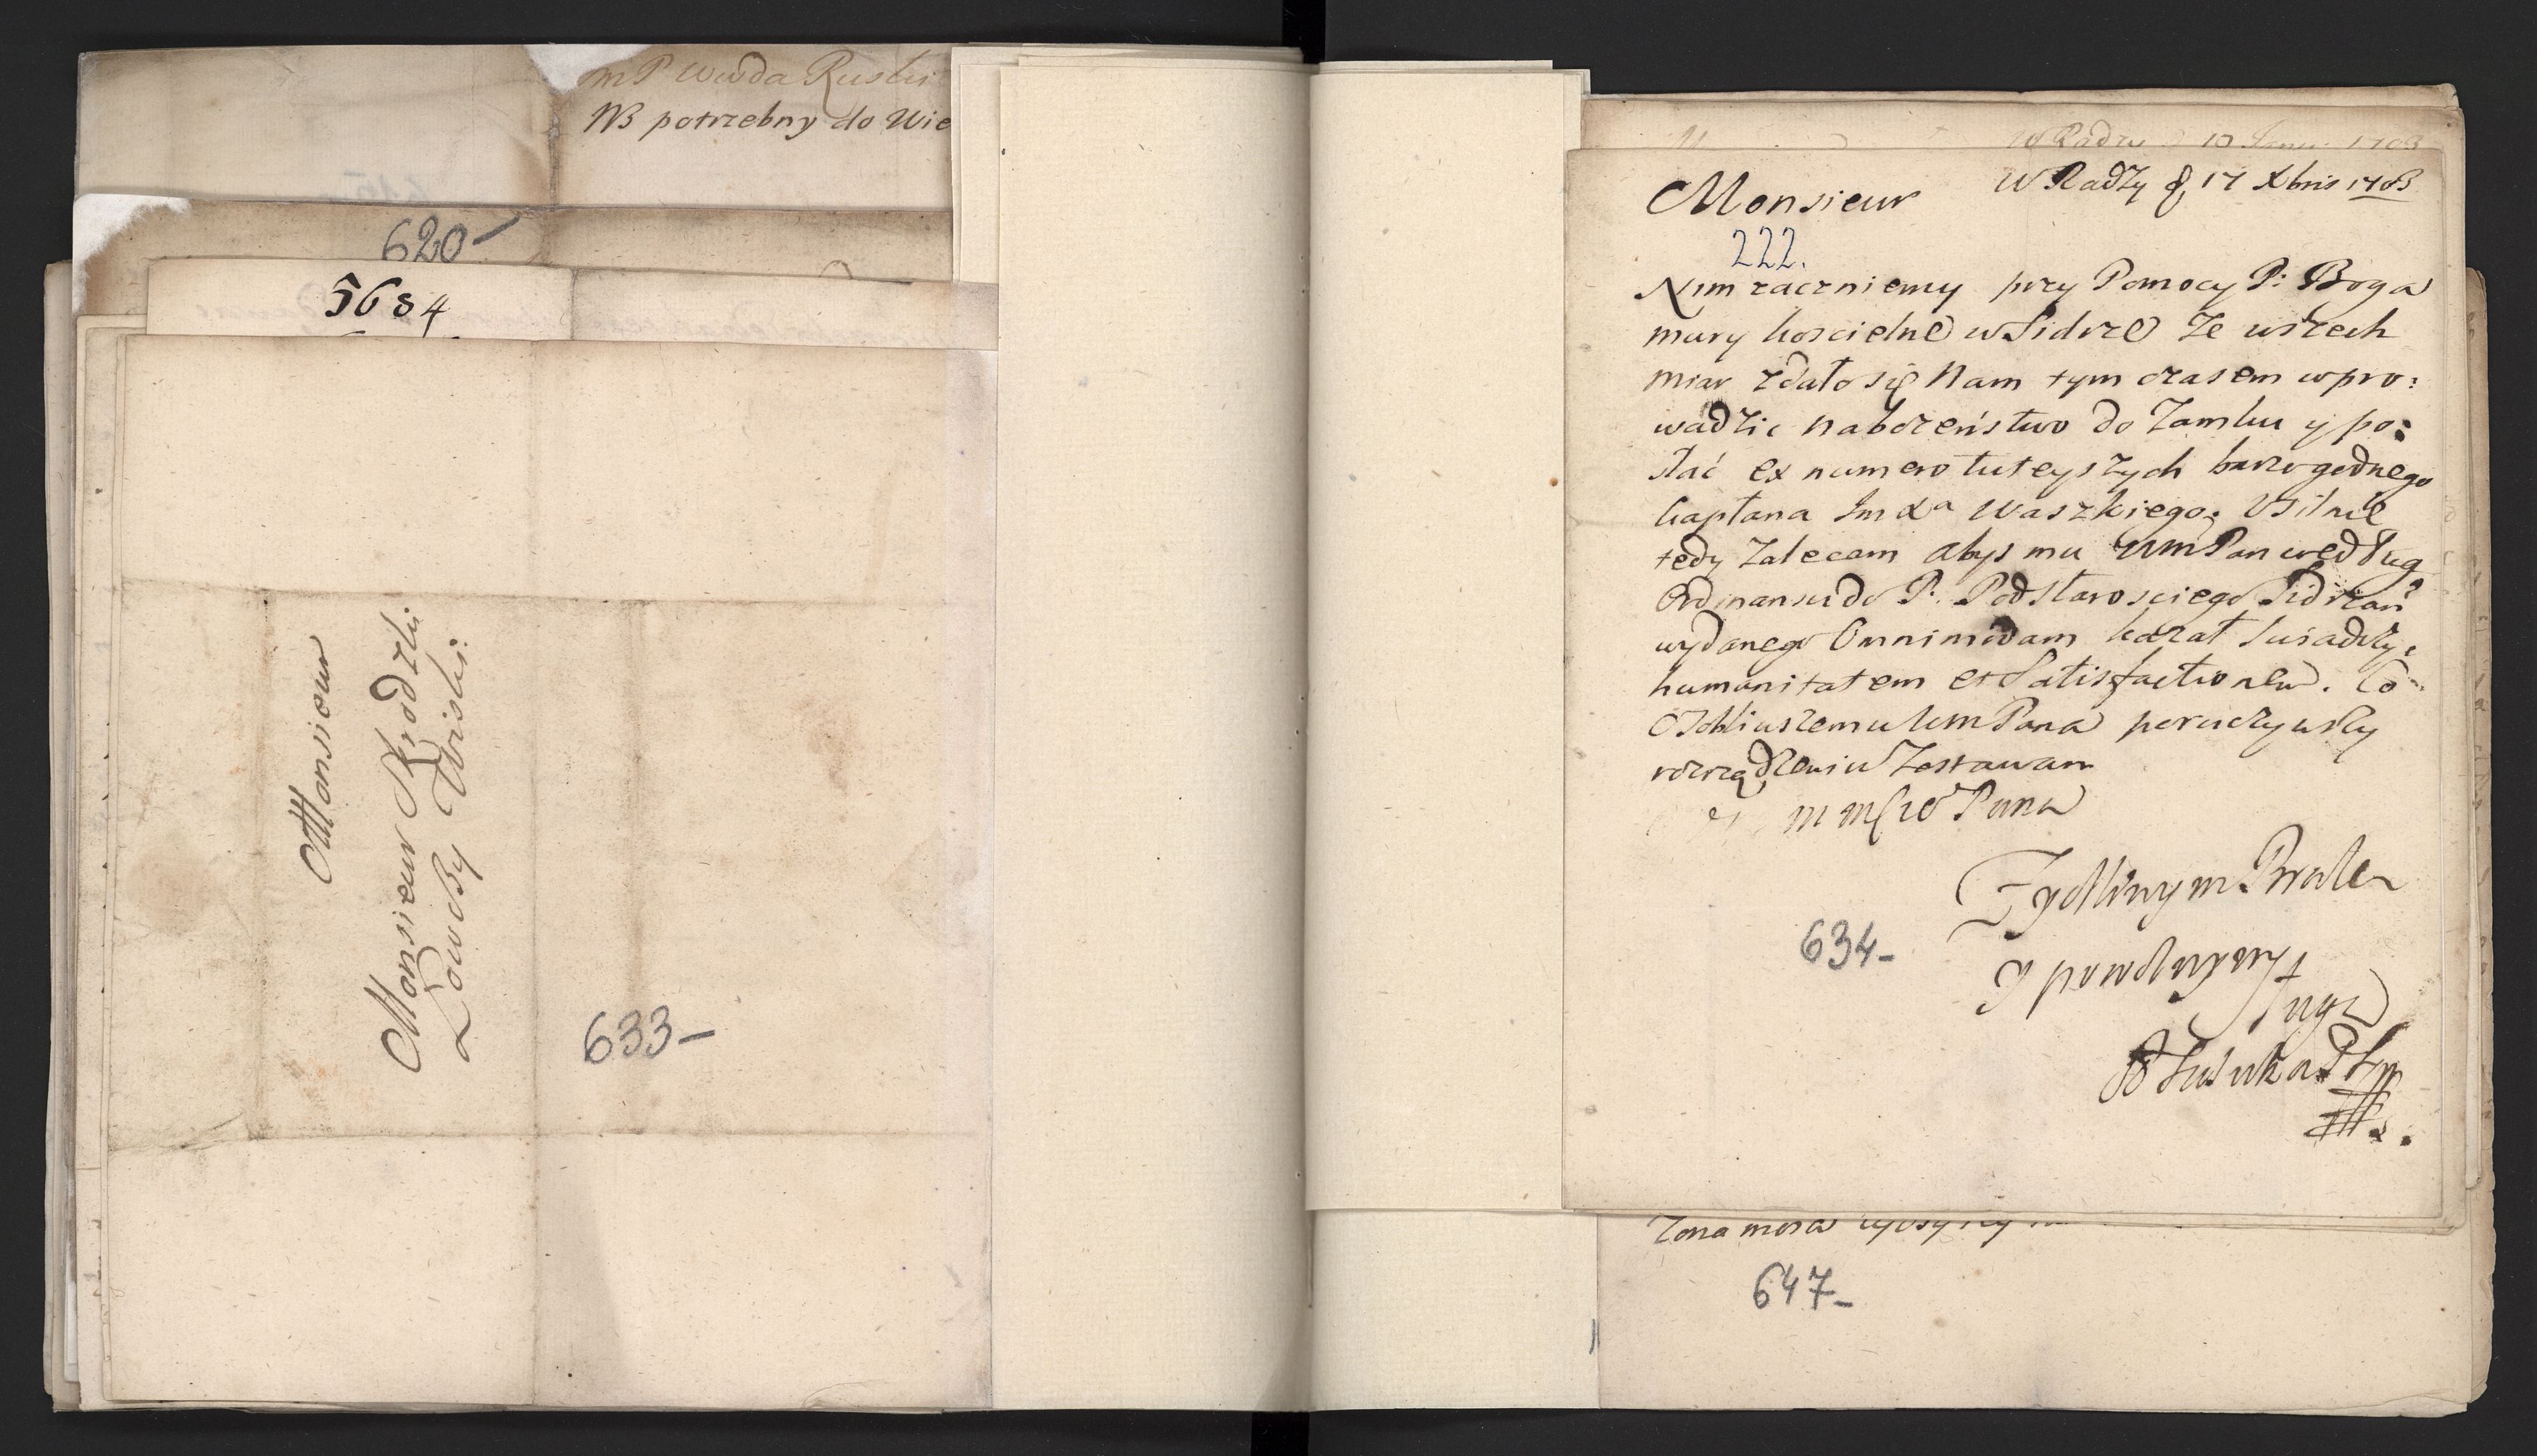 NB potrzebny do Wie
620-
5684
Monsieur
Monsieur
633-
W Radzy d, 17 Xbris 1703
Monsieur
222.
Nim zaczniemy przy Pomocy P: Boga
mury koscielne w Sidrze ze wszech
miar zdało się Nam tym czasem wpro:
wadzić nabozeństwo do Zamku y po:
słać ex numero tuteyszych barzo godnego
kapłana Im Xa Waszkiego; Vsilnie
tedy zalecam abys mu WmPan według
Ordinansu do P. Podstarosciego Sidrzań
wydanego Omnimodam kazał swiadczyć
humanitatem et Satisfactionem. Co
Osobliwszemu WmPana poruczywszy
rozrządzeniu Zostawam
Pana
Zyczliwym Bratem
y powolnym
sługą
634-
Zona moia
647-